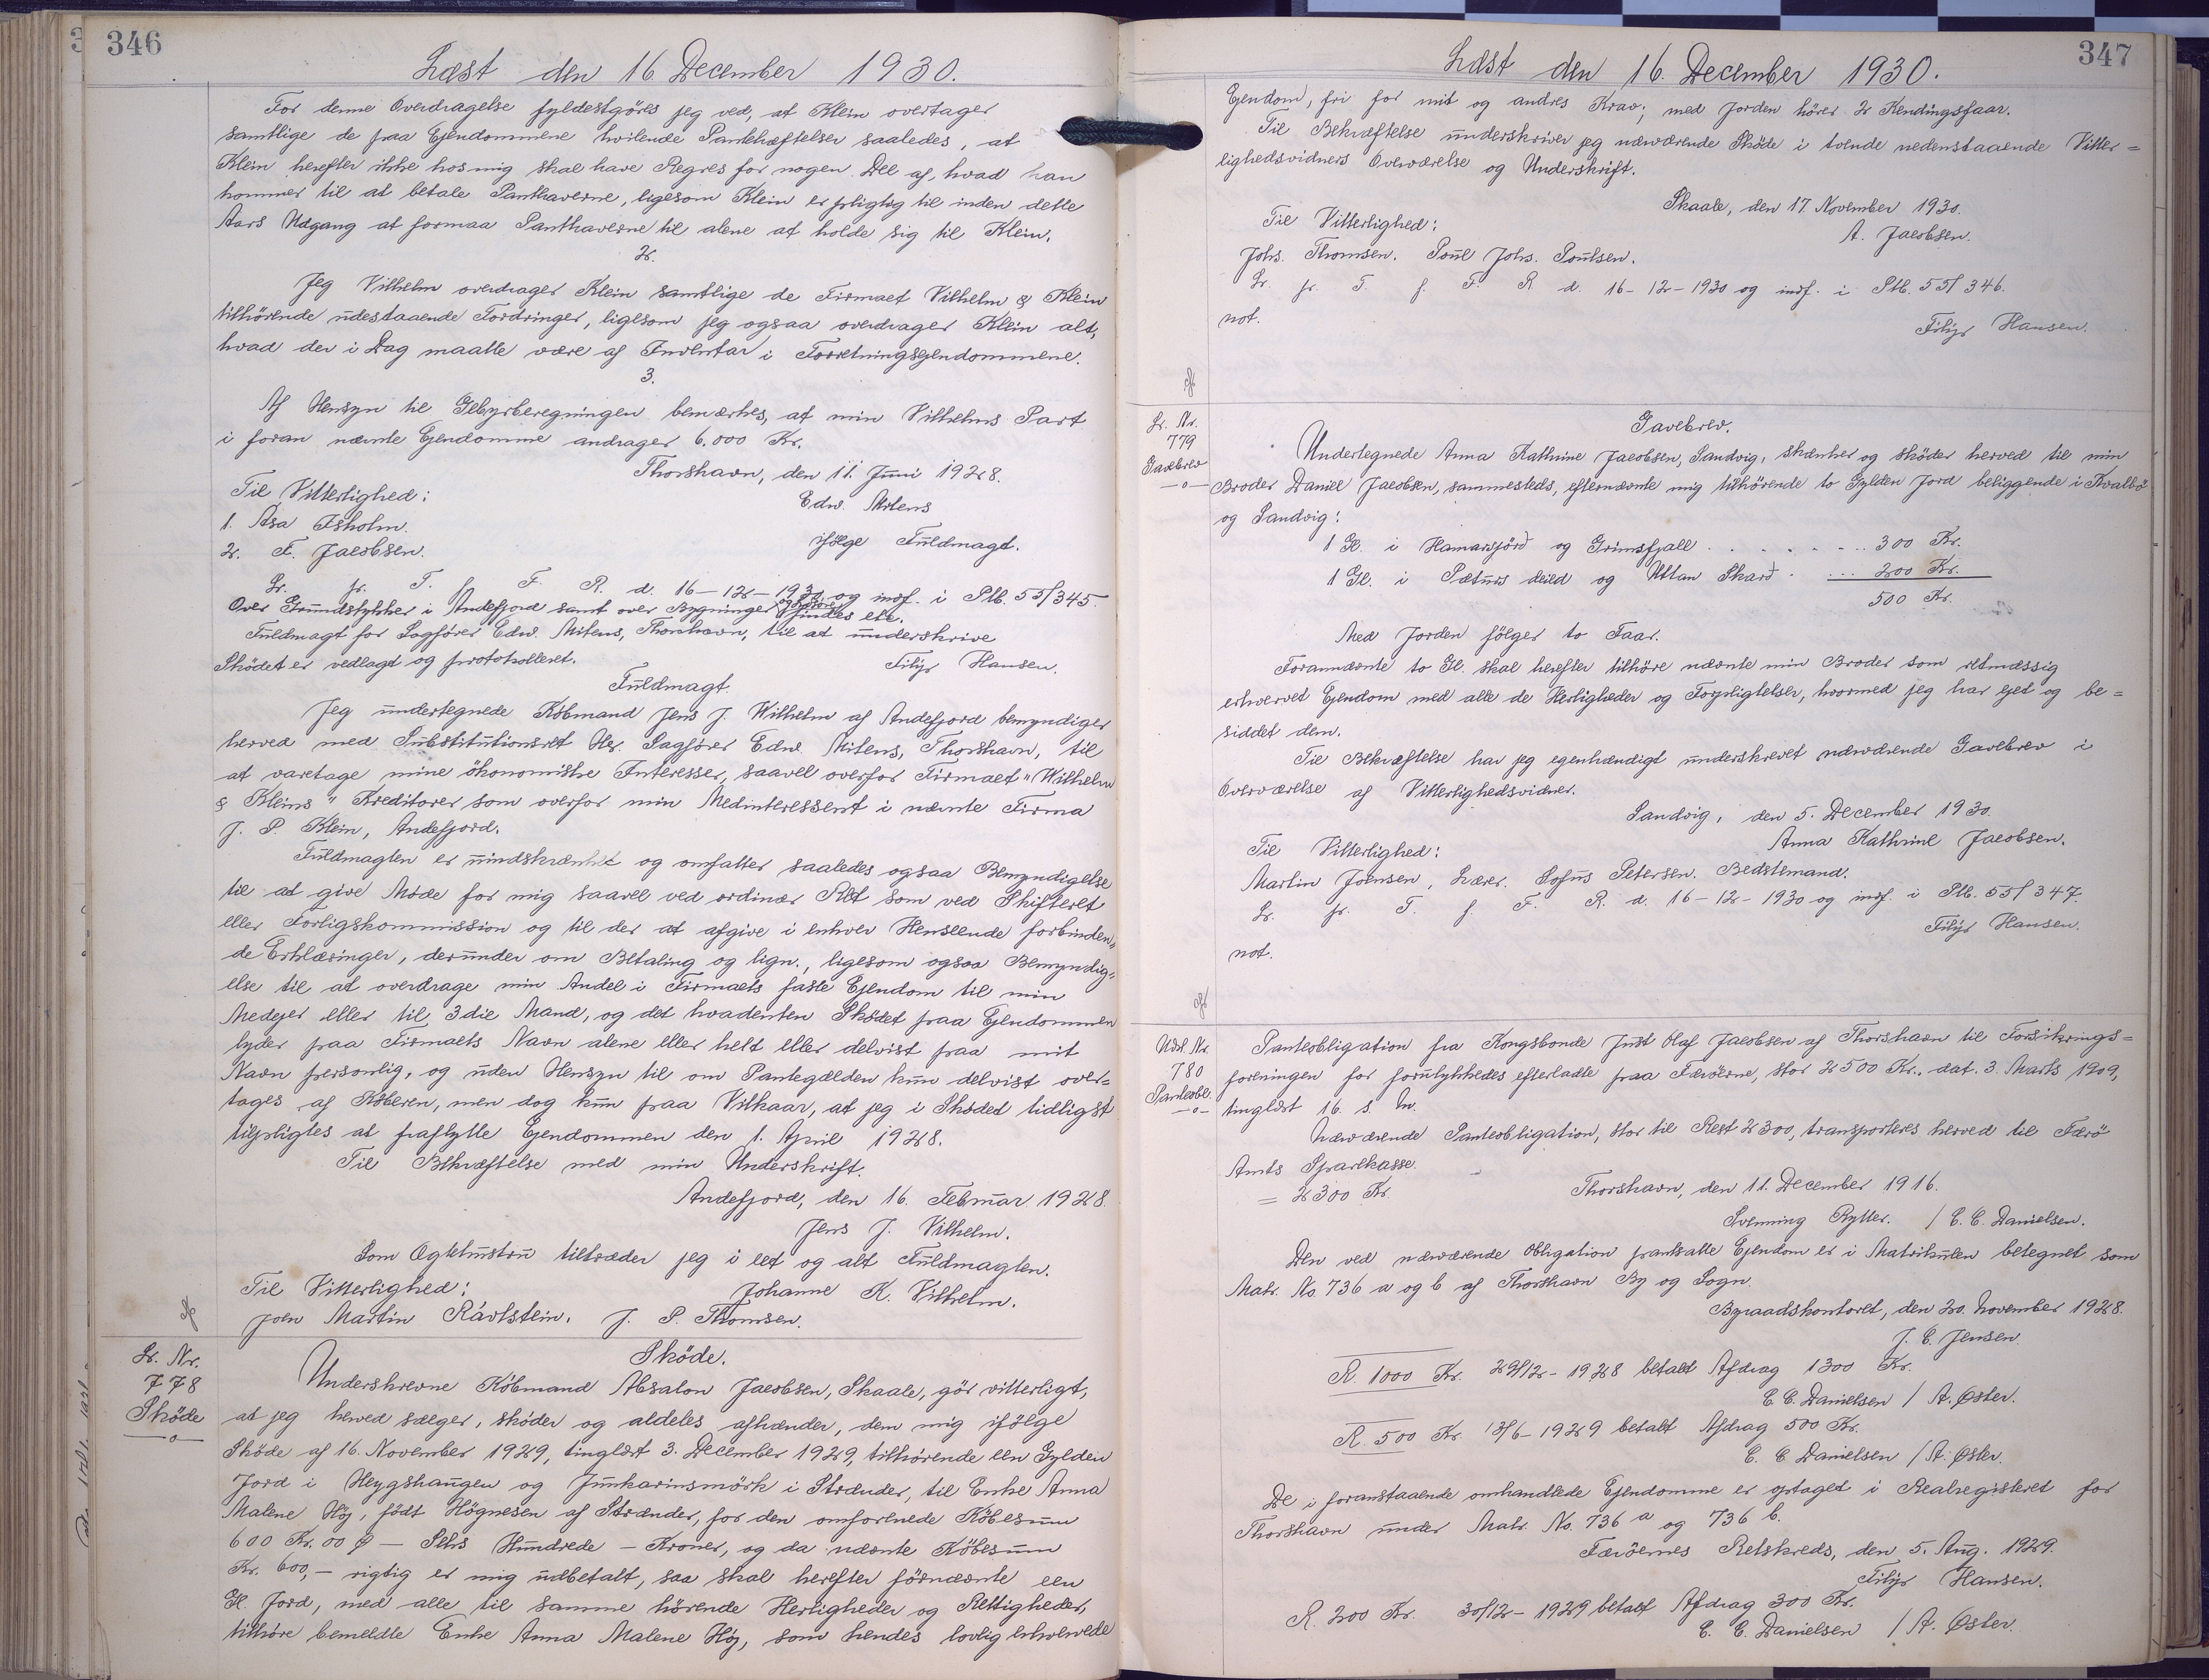 346
Læst den 16 December 1930.
For denne Overdragelse fyldestgöres jeg ved, at Klein overtager
samtlige de paa Ejendommene hvilende Pantehæftelser saaledes, at
Klein herefter ikke hos mig skal have Regres for nogen Del af, hvad han
kommer til at betale Panthaverne, ligesom Klein er pligtig til inden dette
Aars Udgang at formaa Panthaverne til alene at holde sig til Klein.
2.
Jeg Vilhelm overdrager Klein samtlige de Firmaet Vilhelm & Klein
tilhörende udestaaende Fordringer, ligesom jeg ogsaa overdrager Klein alt,
hvad der i Dag maatte være af Inventar i Forretningsejendommene.
3.
Af Hensyn til Gebyrberegningen bemærkes, at min Vilhelms Part
i foran nævnte Ejendomme andrager 6.000 Kr.
Thorshavn, den 11. Juni 1928.
Til Vitterlighed:
Edw. Mitens
1. Asa Isholm.
ifölge Fuldmagt.
2. F. Jacobsen.
Lr. pr. T. f. F. R. d. 16-12-1930 og indf. i Ptb. 55/345.
Over Grundstykker i Andefjord samt over Bygninger findes etc.
Fuldmagt for Sagfører Edw. Mitens, Thorshavn, til at underskrive
Skødet er vedlagt og protokolleret.
Filip Hansen.
Fuldmagt.
Jeg undertegnede Købmand Jens J. Wilhelm af Andefjord bemyndiger
herved med Substitutionsret Hr. Sagfører Edw. Mitens, Thorshavn, til
at varetage mine økonomiske Interesser, saavel overfor Firmaet "Wilhelm
& Kleins" Kreditorer som overfor min Medinteressent i nævnte Firma
J. P. Klein, Andefjord.
Fuldmagten er uindskrænket og omfatter saaledes ogsaa Bemyndigelse
til at give Møde for mig saavel ved ordinær Ret som ved Skifteret
eller Forligskommission og til der at afgive i enhver Henseende forbinden=
de Erklæringer, derunder om Betaling og lign., ligesom ogsaa Bemyndig=
else til at overdrage min Andel i Firmaets faste Ejendom til min
Medejer eller til 3die Mand, og det hvadenten Skødet paa Ejendommen
lyder paa Firmaets Navn alene eller helt eller delvist paa mit
Navn personlig, og uden Hensyn til om Pantegælden kun delvist over=
tages af Køberen, men dog kun paa Vilkaar, at jeg i Skødet tidligst
tilpligtes at fraflytte Ejendommen den 1. April 1928.
Til Bekræftelse med min Underskrift.
Andefjord, den 16. Februar 1928.
Jens J. Vilhelm.
Som Ægtehustru tiltræder jeg i eet og alt Fuldmagten.
Til Vitterlighed:
Johanne K. Vilhelm.
Joen Martin Rávtstein. J. P. Thomsen.
Lr. Nr.
778
Skøde
Skøde.
Underskrevne Købmand Absalon Jacobsen, Skaale, gör vitterligt,
at jeg herved sælger, skøder og aldeles afhænder, dem mig ifølge
Skøde af 16. November 1929, tinglæst 3. December 1929, tilhørende een Gylden
Jord i Heygshaugen og Junkarinsmörk i Strænder, til Enke Anna
Malene Höj, født Högnesen af Strænder, for den omforenede Købesum
600 Kr. 00 Ø — Seks Hundrede — Kroner, og da nævnte Købesum
Kr. 600,— rigtig er mig udbetalt, saa skal herefter förnævnte een
Gl. Jord, med alle til samme hörende Herligheder og Rettigheder,
tilhøre bemeldte Enke Anna Malene Höj, som hendes lovlig erhvervede
347
Læst den 16. December 1930.
Ejendom, fri for mit og andres Krav; med Jorden hörer 2 Kendingsfaar.
Til Bekræftelse underskriver jeg nærværende Skøde i tvende nedenstaaende Vitter=
lighedsvidners Overværelse og Underskrift.
Skaale, den 17. November 1930.
Til Vitterlighed:
A. Jacobsen.
Johs. Thomsen. Poul Johs. Poulsen.
Lr. pr. T. f. F. R. d. 16-12-1930 og indf. i Ptb. 55/346.
not.
Filip Hansen.
Lr. Nr.
779
Gavebrev
Gavebrev.
Undertegnede Anna Kathrine Jacobsen, Sandvig, skænker og skøder herved til min
Broder Daniel Jacobsen, sammesteds, efternævnte mig tilhørende to Gylden Jord beliggende i Kvalbö
og Sandvig:
1 Gl. i Hamarsjörd og Grimsfjall . . . . . . . . . 300 Kr.
1 Gl. i Pæturs deild og Uttan Skard . . . . 200 Kr.
500 Kr.
Med Jorden følger to Faar.
Forannævnte to Gl. skal herefter tilhøre nævnte min Broder som retmæssig
erhvervet Ejendom med alle de Herligheder og Forpligtelser, hvormed jeg har ejet og be=
siddet dem.
Til Bekræftelse har jeg egenhændigt underskrevet nærværende Gavebrev i
Overværelse af Vitterlighedsvidner.
Sandvig, den 5. December 1930.
Til Vitterlighed:
Anna Kathrine Jacobsen.
Martin Joensen, Lærer. Sofus Petersen. Bedstemand.
Lr. pr. T. f. F. R. d. 16-12-1930 og indf. i Ptb. 55/347.
Filip Hansen.
not.
Udsl. Nr.
780
Panteobl.
Panteobligation fra Kongsbonde Just Olaf Jacobsen af Thorshavn til Forsikrings=
foreningen for forulykkedes efterladte paa Færöerne, stor 2500 Kr., dat. 3. Marts 1909,
tinglæst 16. s. M.
Nærværende Panteobligation, stor til Rest 2300, transporteres herved til Færö
Amts Sparekasse.
= 2300 Kr.
Thorshavn, den 11. December 1916.
Svenning Rytter. / C. C. Danielsen.
Den ved nærværende Obligation pantsatte Ejendom er i Matrikulen betegnet som
Matr. No. 736 a og b af Thorshavn By og Sogn.
Byraadskontoret, den 20. November 1928.
J. C. Jensen.
R. 1000 Kr. 29/12-1928 betalt Afdrag 1300 Kr.
C. C. Danielsen / A. Øster.
R. 500 Kr. 13/6-1929 betalt Afdrag 500 Kr.
C. C. Danielsen / A. Øster.
De i foranstaaende omhandlede Ejendomme er optaget i Realregisteret for
Thorshavn under Matr. No. 736 a og 736 b.
Færöernes Retskreds, den 5. Aug. 1929.
Filip Hansen.
R. 200 Kr. 30/12-1929 betalt Afdrag 300 Kr.
C. C. Danielsen / A. Øster.